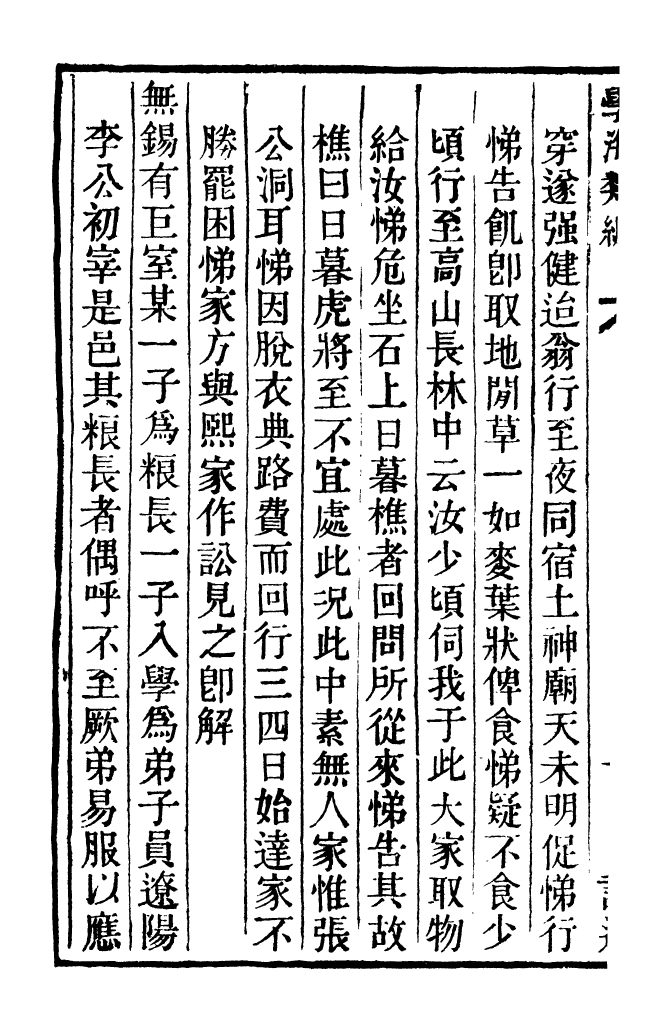 穿遂强健迨翁行至夜同宿土神廟天未明促悌行
悌告飢卽取地閒草一如麥葉狀俾食悌疑不食少
頃行至高山長林中云汝少頃伺我于此大家取物
給汝悌危坐石上日暮樵者回問所從來悌告其故
樵曰日暮虎將至不宜處此况此中素無人家惟張
公洞耳悌因脫衣典路費而回行三四日始達家不
勝罷困悌家方與熙家作訟見之卽解
無錫有巨室某一子爲粮長一子入學爲弟子員遼陽
李公初宰是邑其粮長者偶呼不至厥弟易服以應